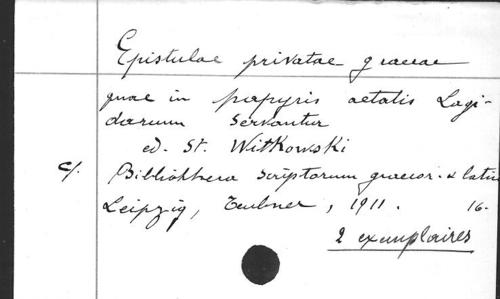 Epistulae privatae graecae
quae in papyris aetatis Lagi-
darum servantur
ed. St. Witkowski
c/. Bibliotheca scriptorum graecor. & latin
Leipzig, Teubner, 1911. 16-
2 exemplaires